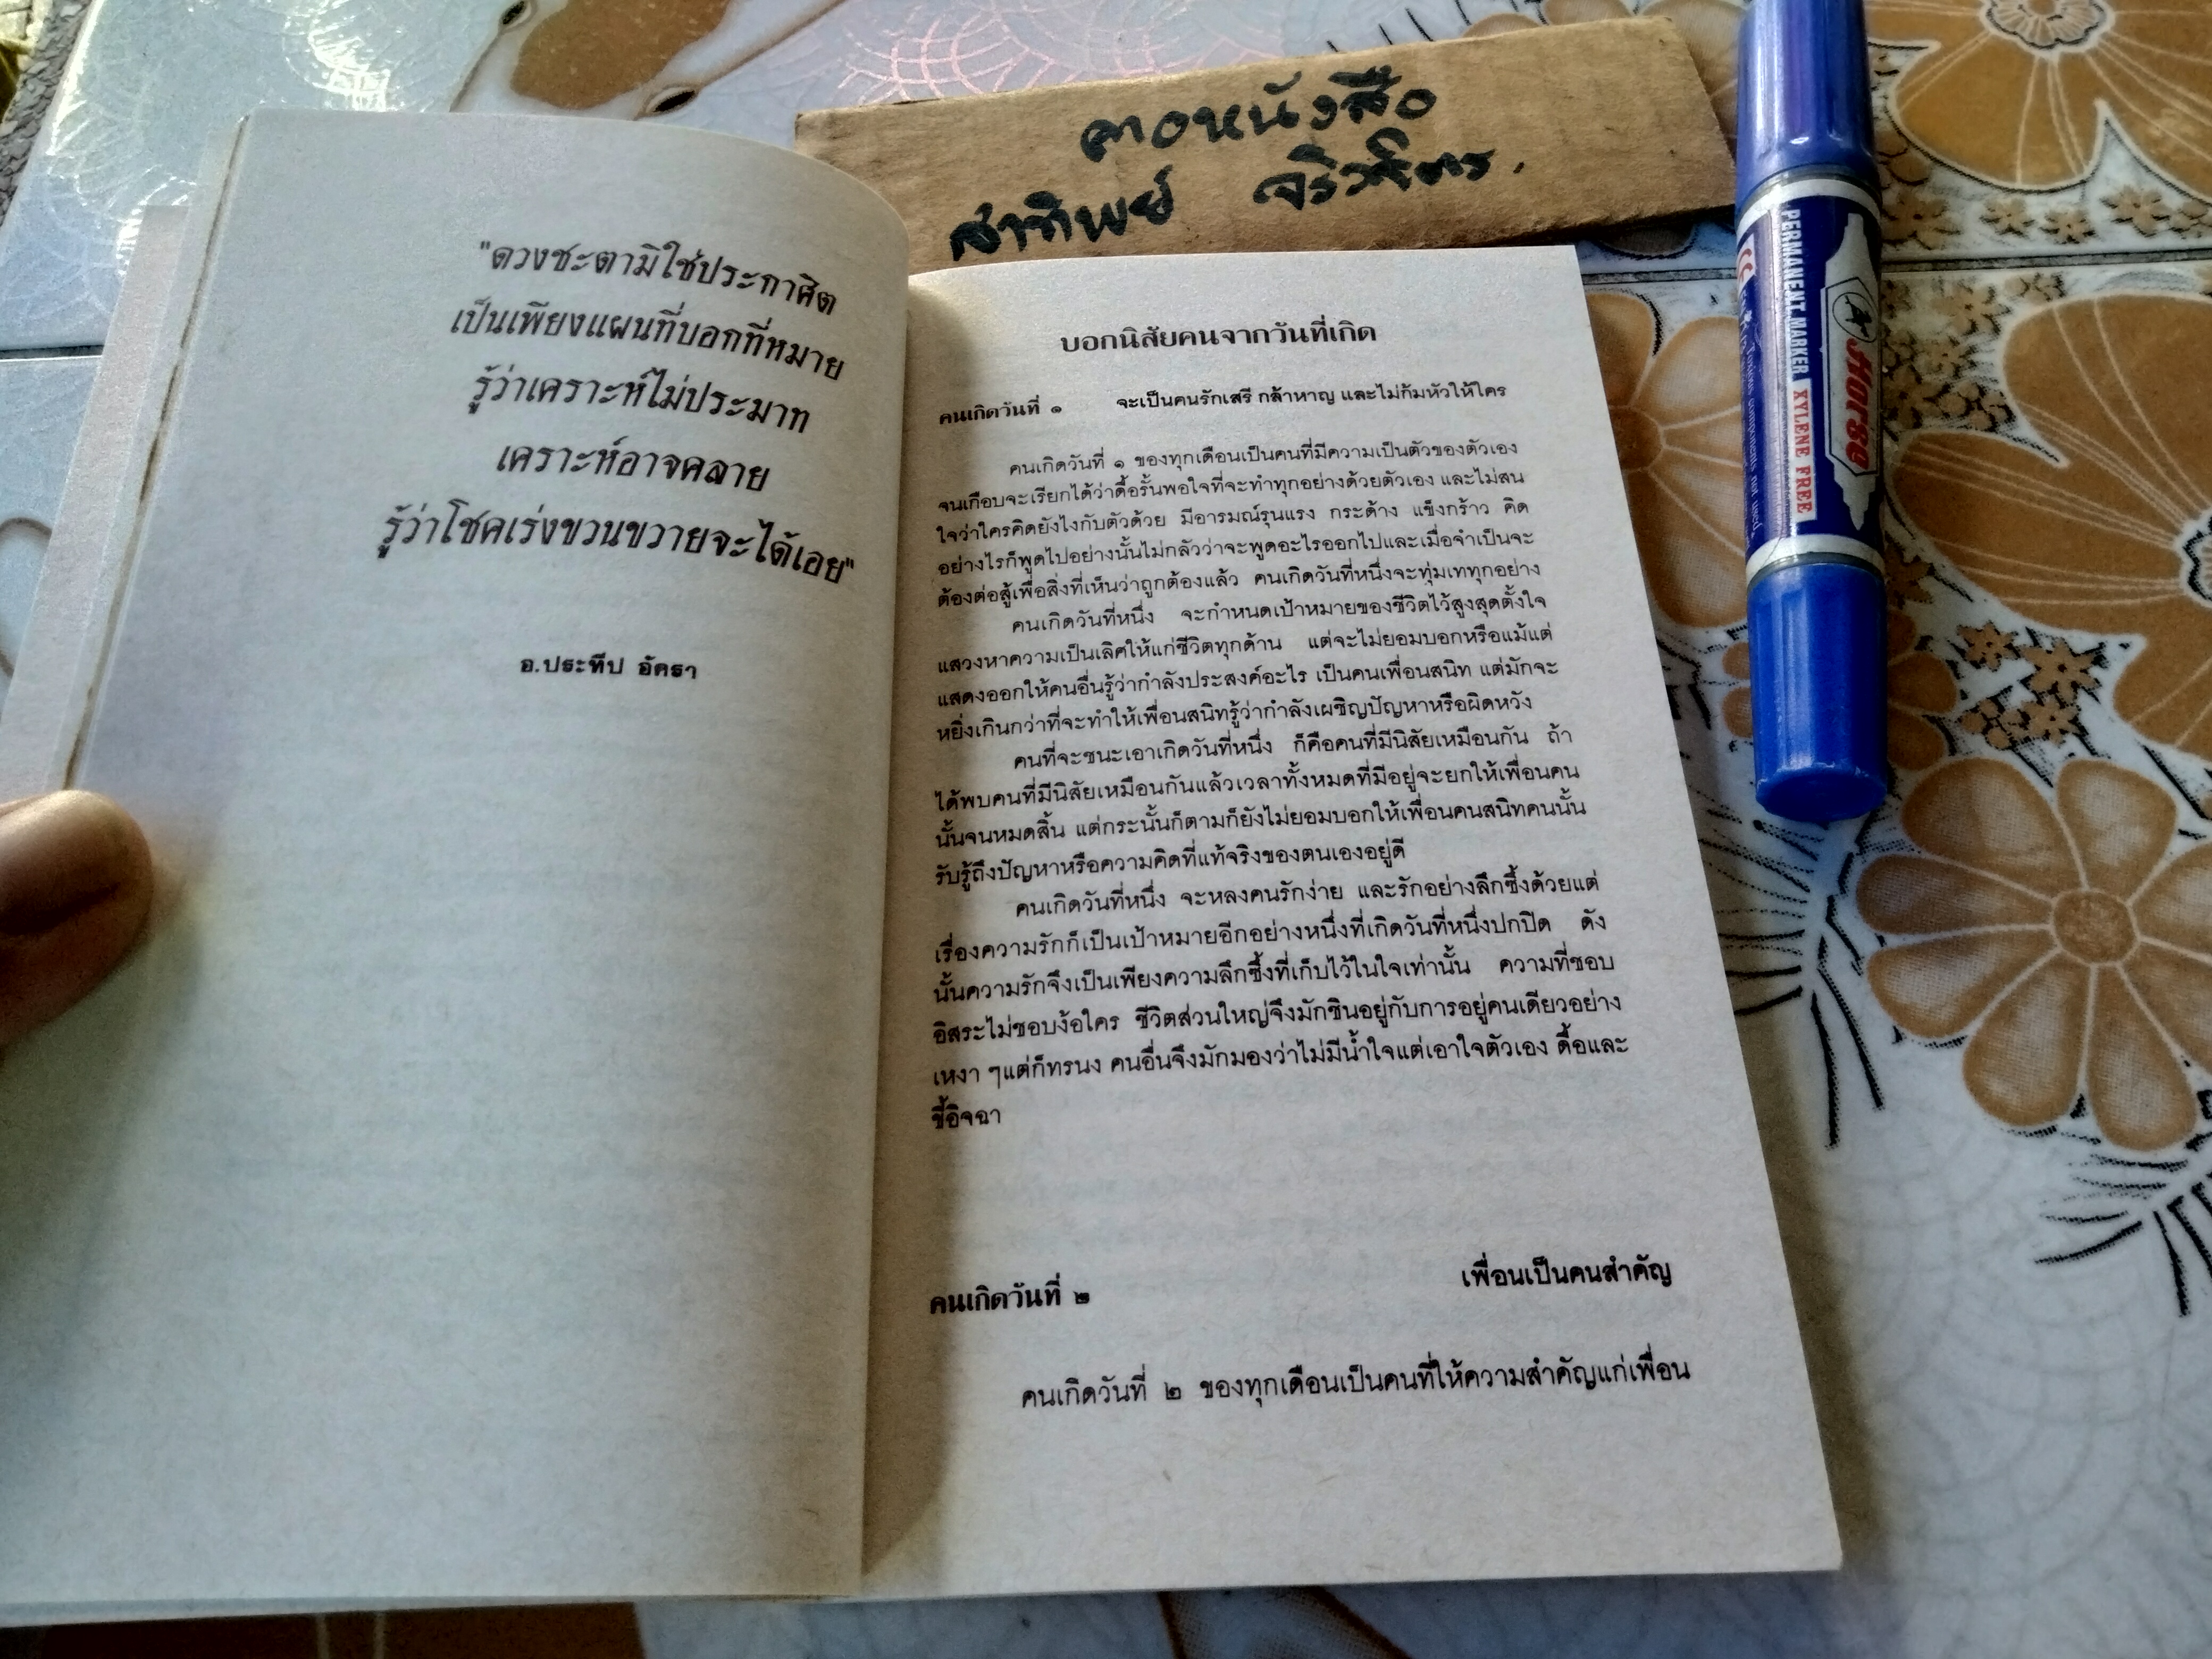 คอหนังสือ
สาทิพย์
"ดวงชะตามิใช่ประกาศิต
เป็นเพียงแผนที่บอกที่หมาย
รู้ว่าเคราะห์ไม่ประมาท
เคราะห์อาจคลาย
รู้ว่าโชคเร่งขวนขวายจะได้เอย"
อ.ประทีป อัครา
บอกนิสัยคนจากวันที่เกิด
คนเกิดวันที่ ๑ จะเป็นคนรักเสรี กล้าหาญ และไม่ก้มหัวให้ใคร
คนเกิดวันที่ ๑ ของทุกเดือนเป็นคนที่มีความเป็นตัวของตัวเอง
จนเกือบจะเรียกได้ว่าดื้อรั้นพอใจที่จะทำทุกอย่างด้วยตัวเอง และไม่สน
ใจว่าใครคิดยังไงกับตัวด้วย มีอารมณ์รุนแรง กระด้าง แข็งกร้าว คิด
อย่างไรก็พูดไปอย่างนั้นไม่กลัวว่าจะพูดอะไรออกไปและเมื่อจำเป็นจะ
ต้องต่อสู้เพื่อสิ่งที่เห็นว่าถูกต้องแล้ว คนเกิดวันที่หนึ่งจะทุ่มเททุกอย่าง
คนเกิดวันที่หนึ่ง จะกำหนดเป้าหมายของชีวิตไว้สูงสุดตั้งใจ
แสวงหาความเป็นเลิศให้แก่ชีวิตทุกด้าน แต่จะไม่ยอมบอกหรือแม้แต่
แสดงออกให้คนอื่นรู้ว่ากำลังประสงค์อะไร เป็นคนเพื่อนสนิท แต่มักจะ
หยิ่งเกินกว่าที่จะทำให้เพื่อนสนิทรู้ว่ากำลังเผชิญปัญหาหรือผิดหวัง
คนที่จะชนะเอาเกิดวันที่หนึ่ง ก็คือคนที่มีนิสัยเหมือนกัน ถ้า
ได้พบคนที่มีนิสัยเหมือนกันแล้วเวลาทั้งหมดที่มีอยู่จะยกให้เพื่อนคน
นั้นจนหมดสิ้น แต่กระนั้นก็ตามก็ยังไม่ยอมบอกให้เพื่อนคนสนิทคนนั้น
รับรู้ถึงปัญหาหรือความคิดที่แท้จริงของตนเองอยู่ดี
คนเกิดวันที่หนึ่ง จะหลงคนรักง่าย และรักอย่างลึกซึ้งด้วยแต่
เรื่องความรักก็เป็นเป้าหมายอีกอย่างหนึ่งที่เกิดวันที่หนึ่งปกปิด ดัง
นั้นความรักจึงเป็นเพียงความลึกซึ้งที่เก็บไว้ในใจเท่านั้น ความที่ชอบ
อิสระไม่ชอบง้อใคร ชีวิตส่วนใหญ่จึงมักชินอยู่กับการอยู่คนเดียวอย่าง
เหงา ๆแต่ก็ทรนง คนอื่นจึงมักมองว่าไม่มีน้ำใจแต่เอาใจตัวเอง ดื้อและ
ขี้อิจฉา
คนเกิดวันที่ ๒ เพื่อนเป็นคนสำคัญ
คนเกิดวันที่ ๒ ของทุกเดือนเป็นคนที่ให้ความสำคัญแก่เพื่อน
Horse
PERMANENT MARKER XYLENE FREE